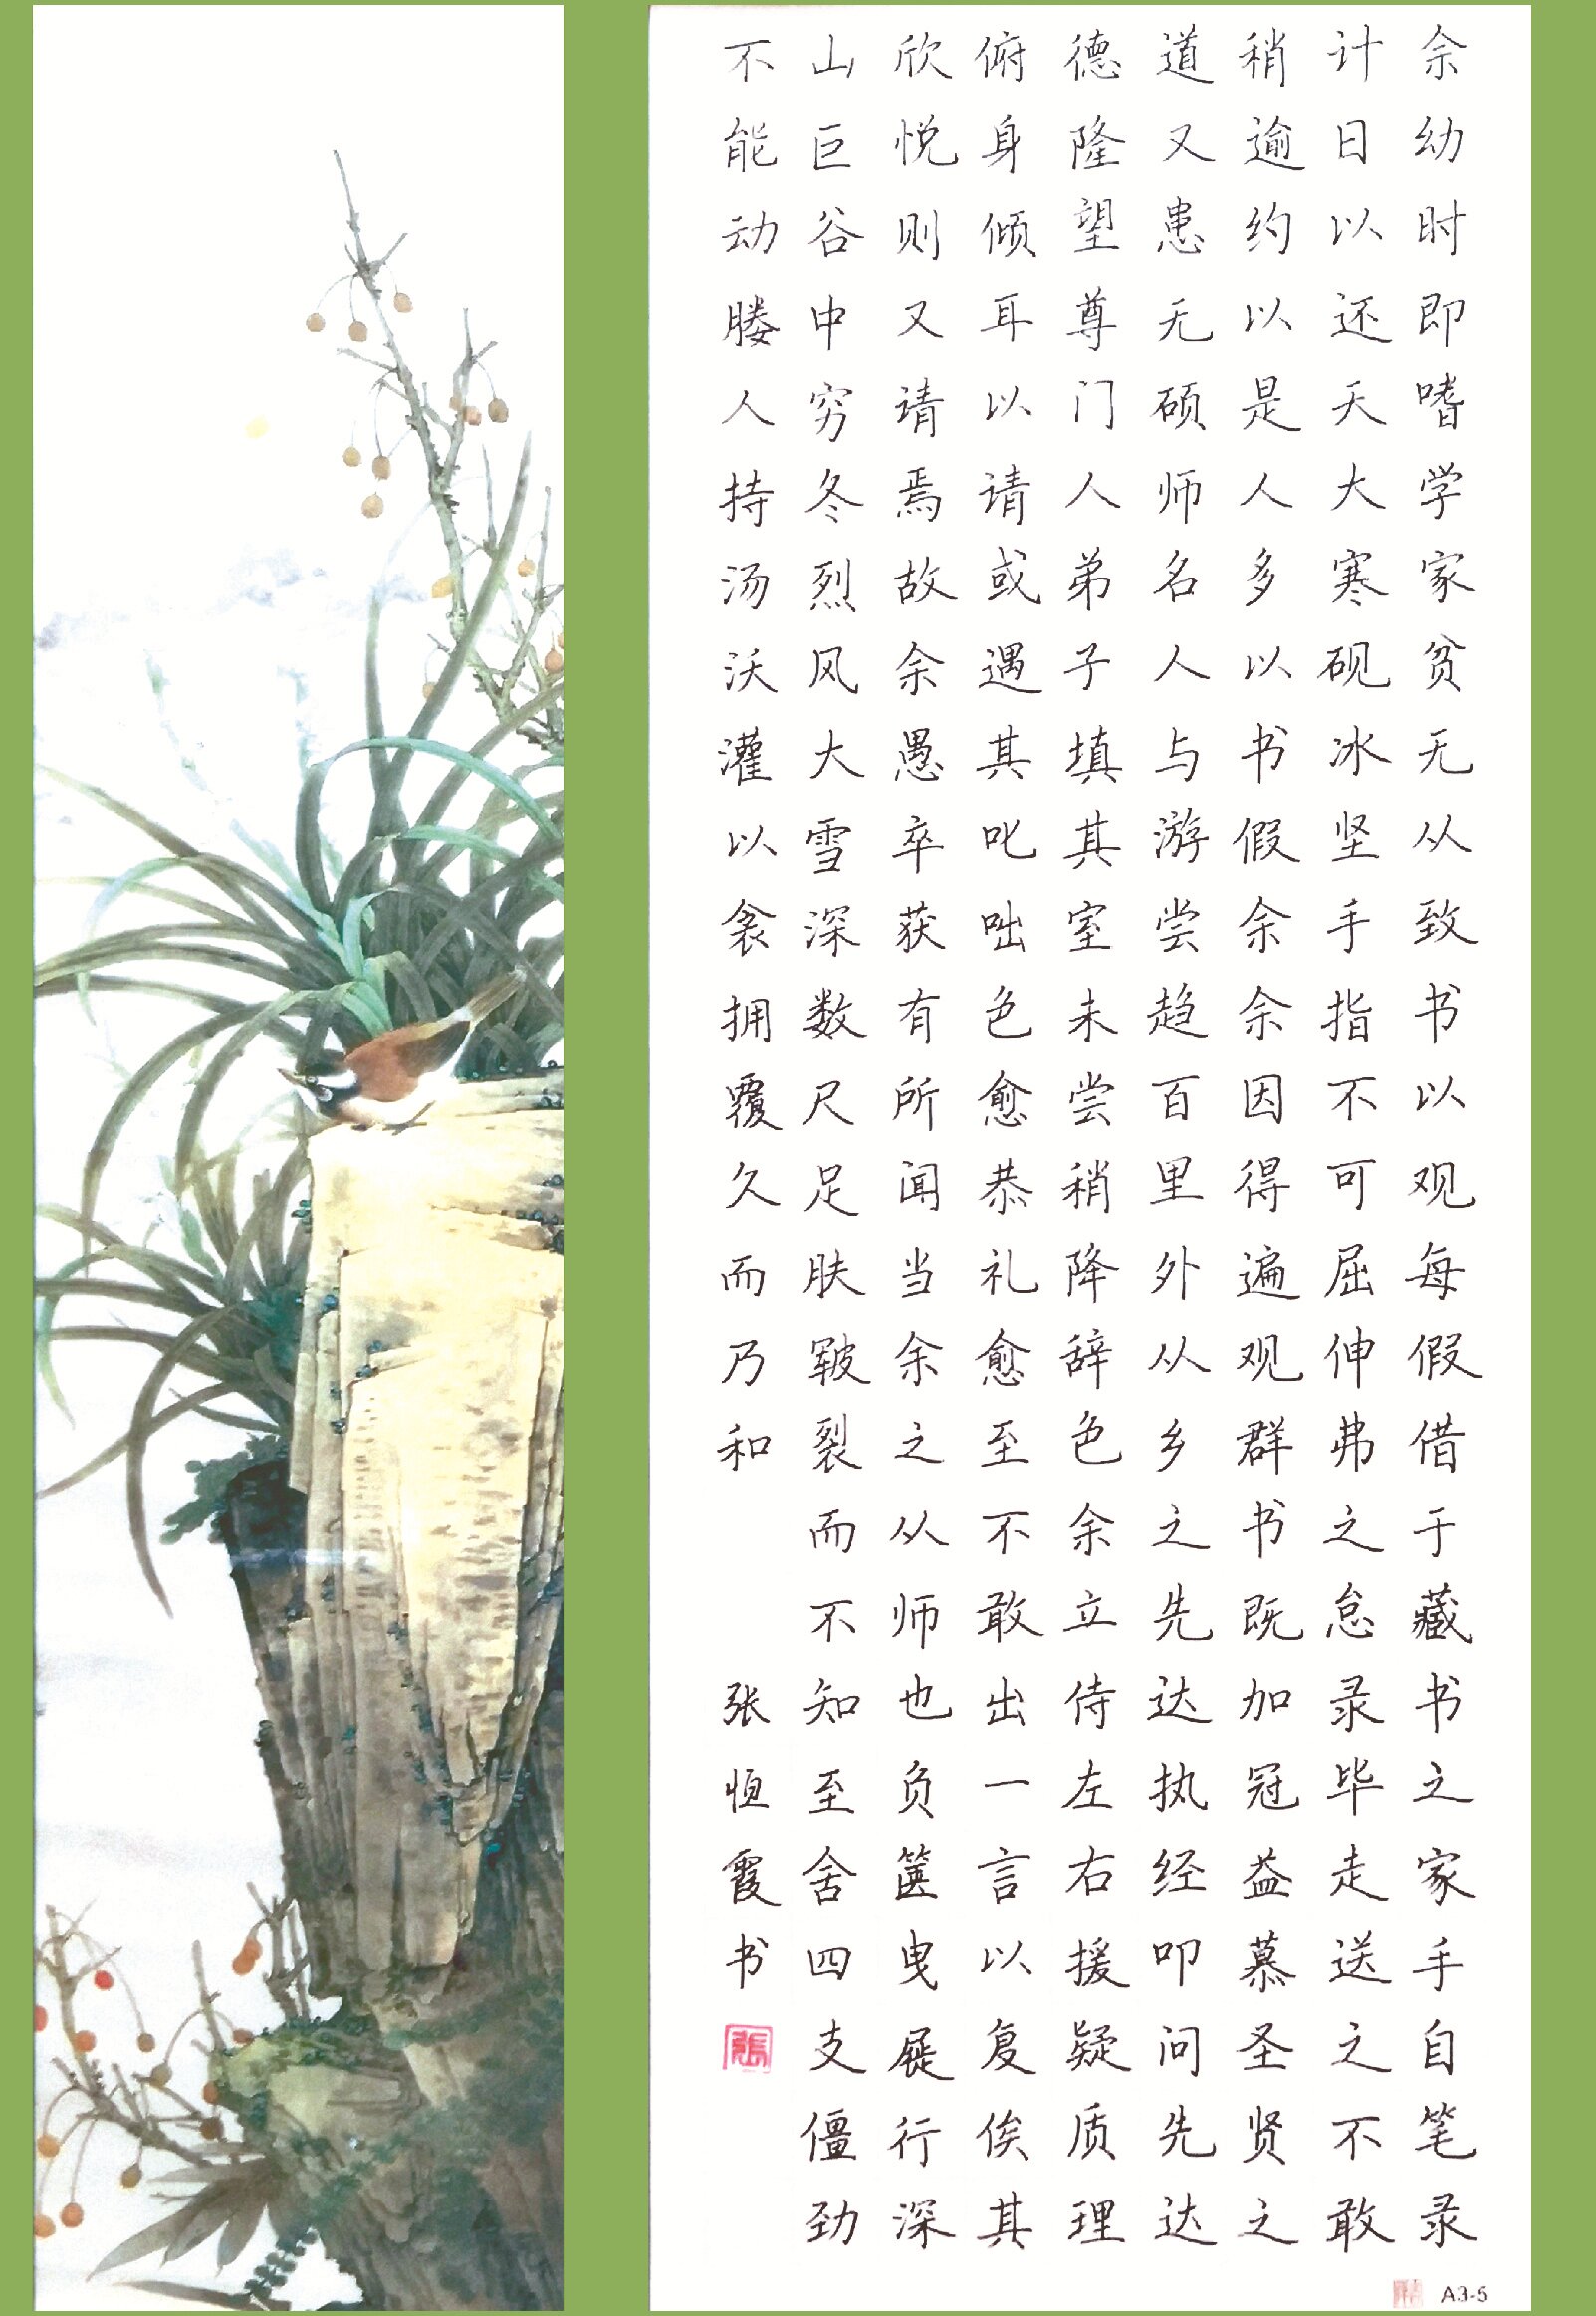 余幼时即嗜学家贫无从致书以观每假借于藏书之家手自笔录
计日以还天大寒砚冰坚手指不可屈伸弗之怠录毕走送之不敢
稍逾约以是人多以书假余余因得遍观群书既加冠益慕圣贤之
道又患无硕师名人与游尝趋百里外从乡之先达执经叩问先达
德隆望尊门人弟子填其室未尝稍降辞色余立侍左右援疑质理
俯身倾耳以请或遇其叱咄色愈恭礼愈至不敢出一言以复俟其
欣悦则又请焉故余愚卒获有所闻当余之从师也负箧曳屣行深
山巨谷中穷冬烈风大雪深数尺足肤皲裂而不知至舍四支僵劲
不能动媵人持汤沃灌以衾拥覆久而乃和 张恒霞书
張
A3-5